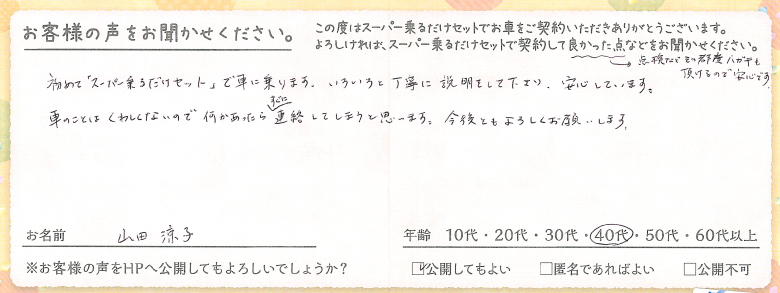 お客様の声をお聞かせください。
この度はスーパー乗るだけセットでお車をご契約いただきありがとうございます。
よろしければ、スーパー乗るだけセットで契約して良かった点などをお聞かせください。
点検などもその都度ハガキも
頂けるので安心です
初めて「スーパー乗るだけセット」で車に乗ります。いろいろと丁寧に説明をして下さり、安心しています。
すぐに
車のことはくわしくないので何かあったら連絡してしまうと思います。今後ともよろしくお願いします。
お名前 山田 涼子
年齢 10代・20代・30代・40代・50代・60代以上
※お客様の声をHPへ公開してもよろしいでしょうか？ □公開してもよい □匿名であればよい □公開不可